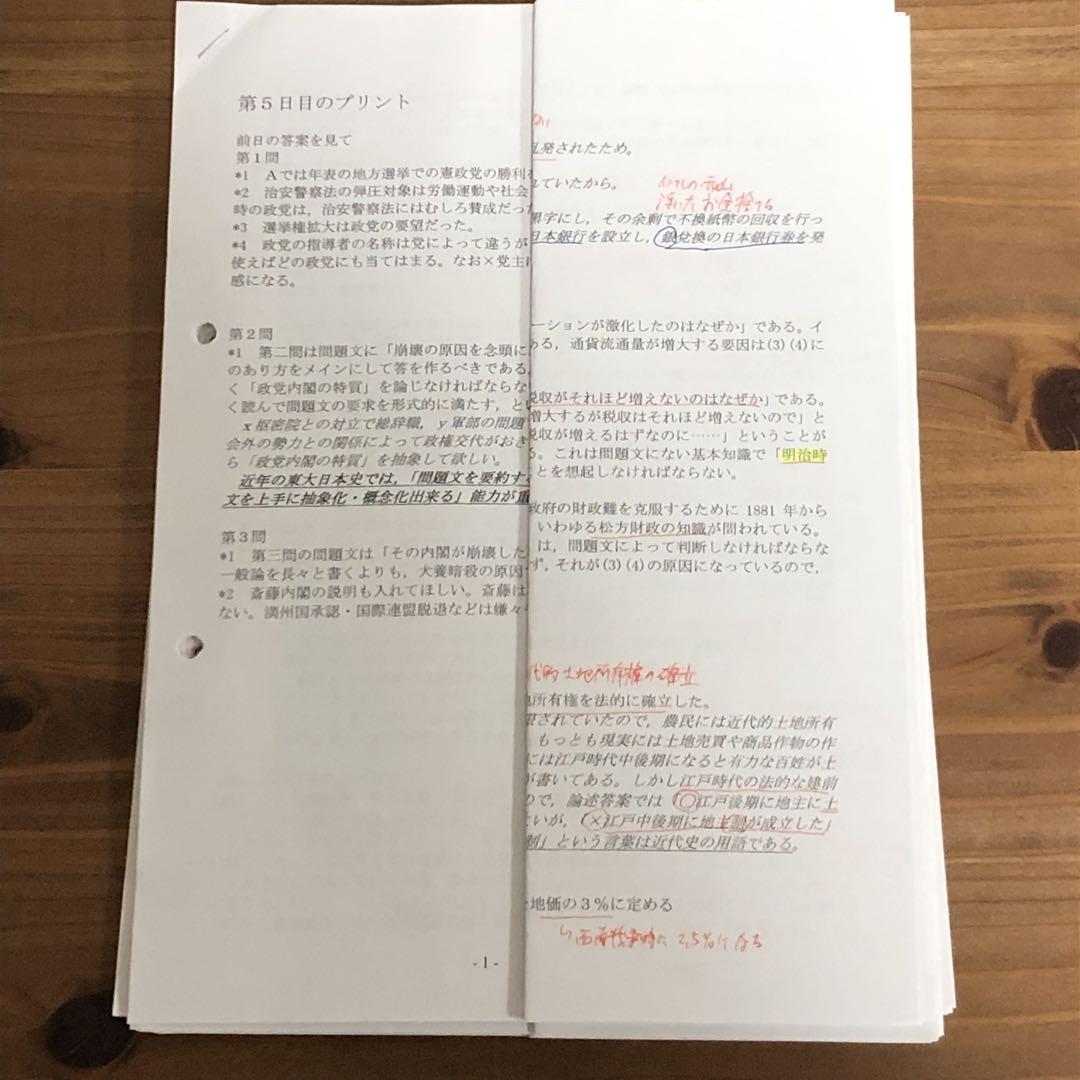 第5日目のプリント
前日の答案を見て
第1問
*1 Aでは年表の地方選挙での憲政党の勝利
*2 治安警察法の弾圧対象は労働運動や社会
時の政党は，治安警察法にはむしろ賛成だっ
*3 選挙権拡大は政党の要望だった。
*4 政党の指導者の名称は党によって違うが
使えばどの政党にも当てはまる。なお×党主
感になる。
第2問
*1 第二問は問題文に「崩壊の原因を念頭に
のあり方をメインにして答を作るべきである
く「政党内閣の特質」を論じなければならな
く読んで問題文の要求を形式的に満たす，と
x枢密院との対立で総辞職，y軍部の問題
会外の勢力との関係によって政権交代がおき
ら「政党内閣の特質」を抽象して欲しい。
近年の東大日本史では，「問題文を要約す
文を上手に抽象化・概念化出来る」能力が重
第3問
*1 第三問の問題文は「その内閣が崩壊した
一般論を長々と書くよりも，犬養暗殺の原因
*2 斎藤内閣の説明も入れてほしい。斎藤は
ない。満州国承認・国際連盟脱退などは嫌々
- 1 -
ない
乱発されたため。
れていたから。
浮いたお金捨てる
黒字にし，その余剰で不換紙幣の回収を行っ
日本銀行を設立し，銀兌換の日本銀行券を発
ーションが激化したのはなぜか」である。イ
ある，通貨流通量が増大する要因は(3)(4)に
税収がそれほど増えないのはなぜか」である。
増大するが税収はそれほど増えないので」と
税収が増えるはずなのに……」ということが
る。これは問題文にない基本知識で「明治時
ことを想起しなければならない。
政府の財政難を克服するために1881年から
いわゆる松方財政の知識が問われている。
は，問題文によって判断しなければならな
ず，それが(3)(4)の原因になっているので，
代的土地所有権の確立
地所有権を法的に確立した。
限されていたので，農民には近代的土地所有
もっとも現実には土地売買や商品作物の作
には江戸時代中後期になると有力な百姓が土
が書いてある。しかし江戸時代の法的な建前
ので，論述答案では「○江戸後期に地主に土
よいが，「×江戸中後期に地主制が成立した」
制」という言葉は近代史の用語である。
地価の3％に定める
↳西南戦争時に2,5%になる